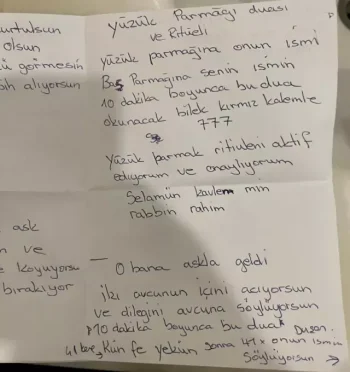 urtulsun
olsun
ü görmesin
ih alıyorsun
yüzük Parmağı duası
ve Ritüeli
yüzük parmağına onun ismi
Baş Parmağına senin ismin
10 dakika boyunca bu dua
okunacak bilek kırmız kalemle
777
yüzük parmak ritiuleni aktif
ediyorum ve onaylıyorum
Selamün kavlem min
rabbin rahim
ask
n ve
e koyuyorsu
bırakıyor
— O bana aşkla geldi
iki avcunun içini açıyorsun
ve dileğini avcuna söylüyorsun
10 dakika boyunca bu dua
41 kere, Kün fe yekün sonra 41x onun ismini
söylüyorsun →